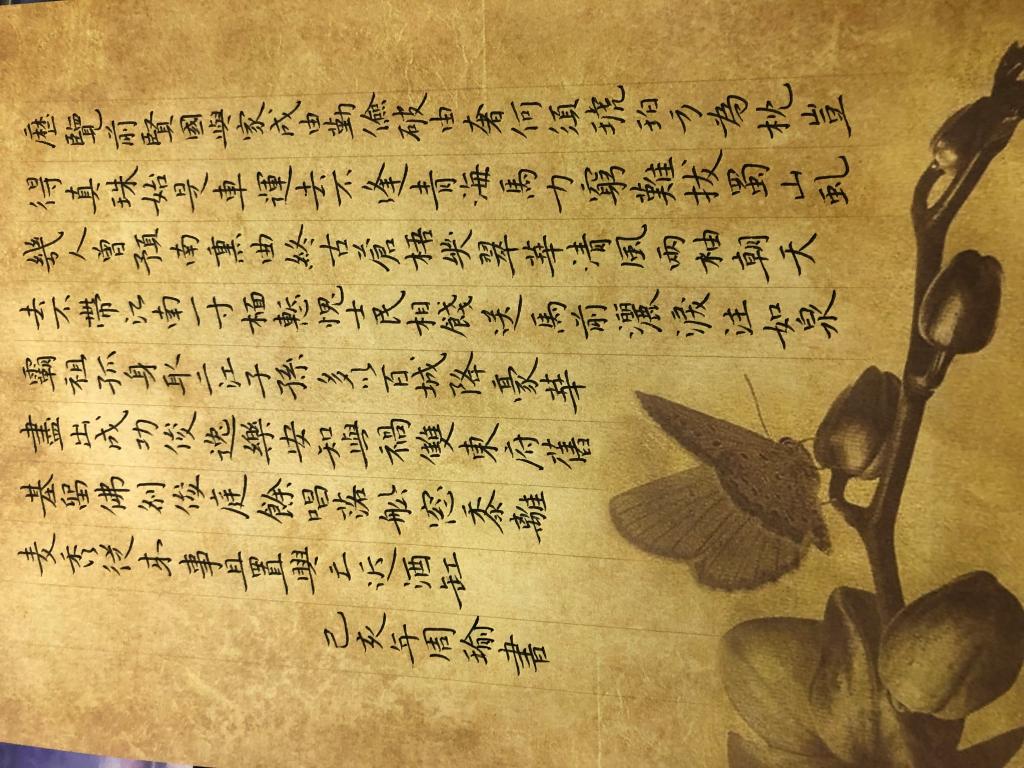 歷覽前賢國與家成由勤儉破由奢何須琥珀方為枕豈
得真珠始是車運去不逢青海馬力窮難拔蜀山虬
幾人曾預南熏曲終古蒼梧哭翠華清風兩袖朝天
去不帶江南一寸棉慙愧士民相餞送馬前灑淚注如泉
霸祖孤身取二江子孫多以百城降豪華
盡出成功後逸樂安知與禍雙東府舊
基留佛刹後庭餘唱落船窓黍離
麦秀從来事且置興亡近酒缸
己亥年周瑜書